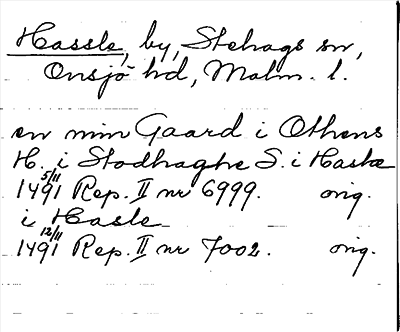 Hassle, by, Stehags sn,
Onsjö hd, Malm. l.
en min Gaard i Othens
H. i Stodhaghe S. i Hasle
1491 5/11 Rep. II nr 6999. orig.
i Hasle
1491 12/11 Rep. II nr 7002. orig.